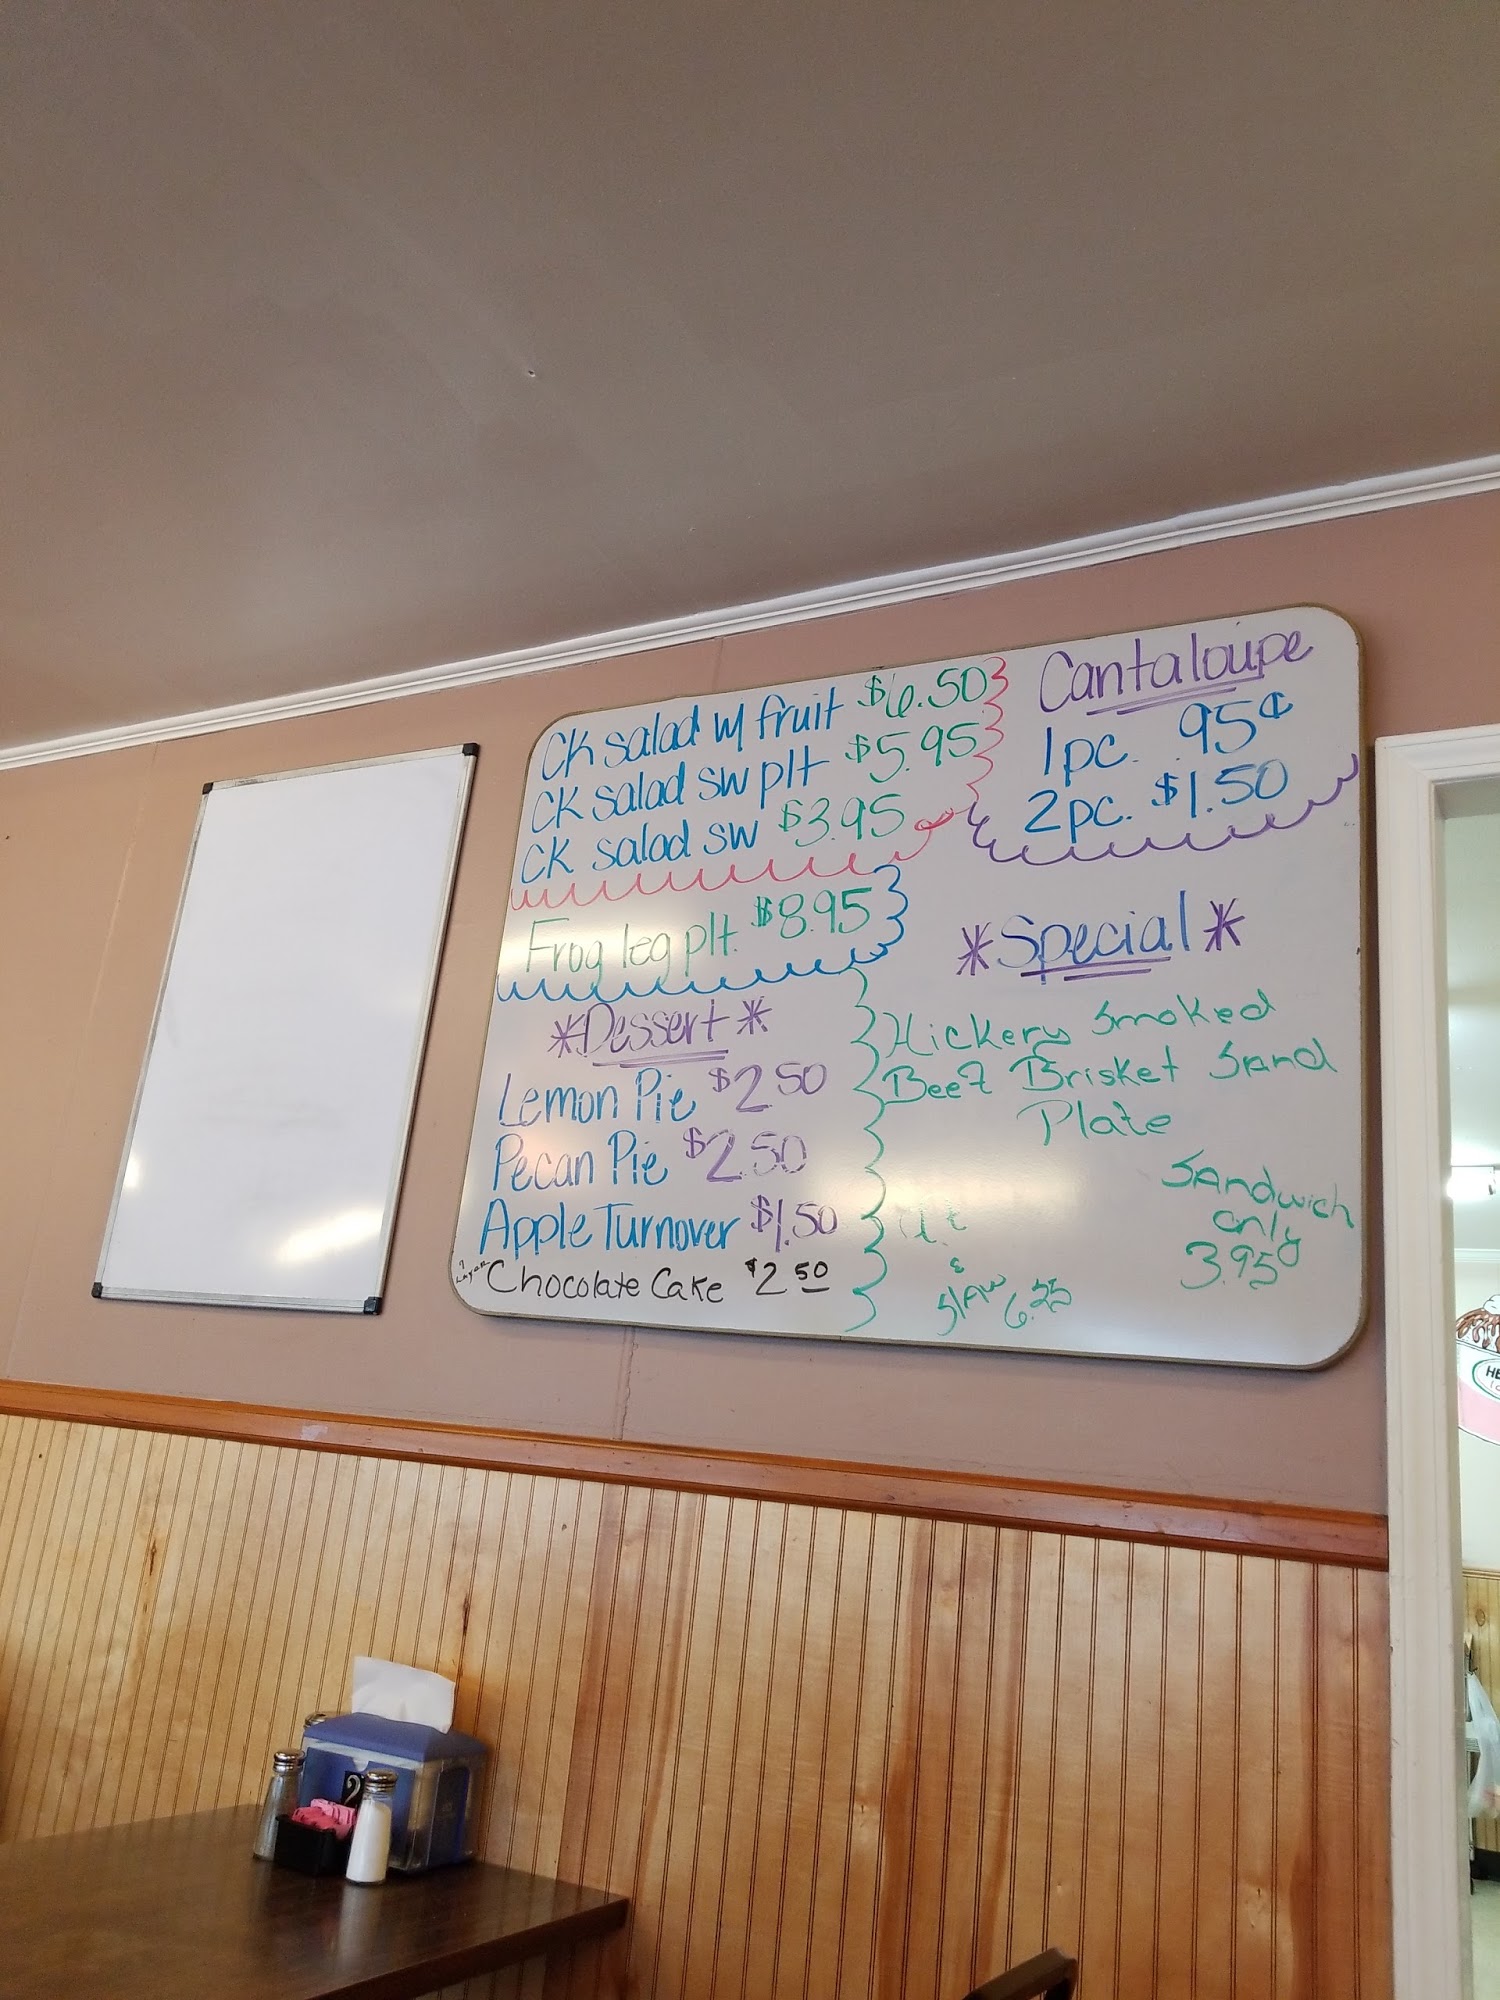 CK salad w/ fruit $6.50
CK salad sw plt $5.95
CK salad sw $3.95
Frog leg plt. $8.95
*Dessert*
Lemon Pie $2.50
Pecan Pie $2.50
Apple Turnover $1.50
7 Layer Chocolate Cake $2.50
Cantaloupe
1pc. 95¢
2pc. $1.50
*Special*
Hickery Smoked
Beef Brisket Sand
Plate
Sandwich
only
3.95
&
Slaw 6.25